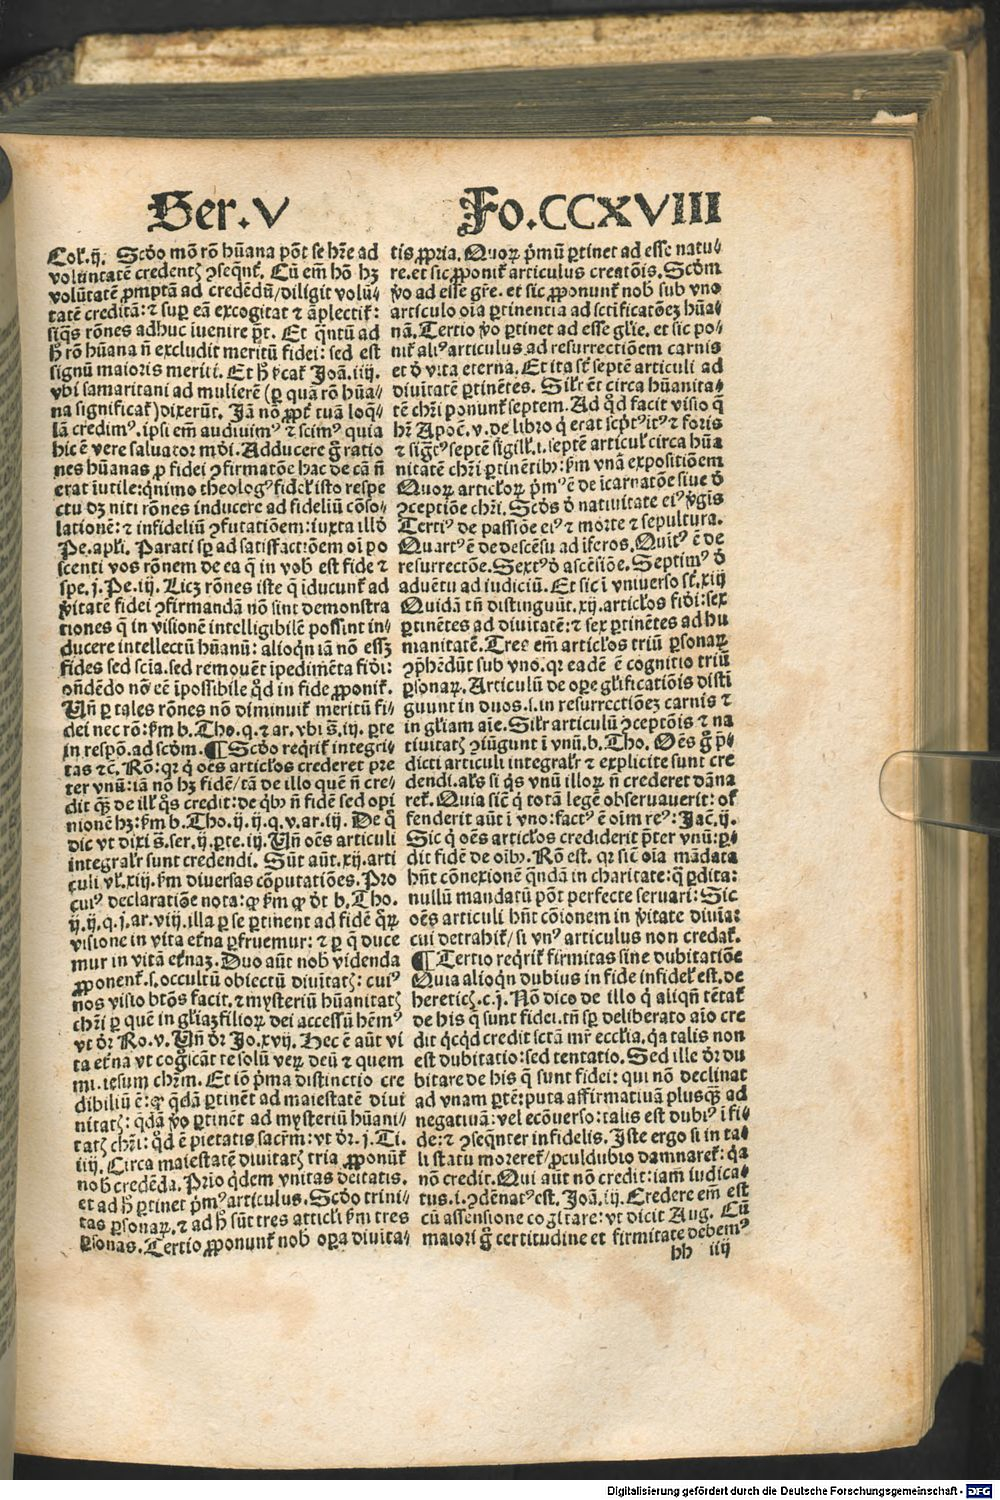 Ser.V
Fo.CCXVIII
Col.ij. Scd̄o mō rō hūana pōt se hr̄e ad
voluntatē credentꝭ ꝯseqnt᷑. Cū em̄ hō hꝫ
volūtatē ꝓmptā ad credēdū/diligit volū-
tatē creditā: ⁊ suꝑ eā excogitat ⁊ āplectit᷑:
siq̄s rōnes adhuc iuenire pt̄. Et q̄ntū ad
h̄ rō hūana n̄ excludit meritū fidei: sed est
signū maioris meriti. Et h̄ Joā.iiij.
vbi samaritani ad mulierē (ꝑ quā rō hūa-
na significat᷑)dixerūt. Jā nō ꝓpt᷑ tuā loq̄-
lā credimꝰ.ipsi em̄ audiuimꝰ ⁊ scimꝰ quia
hic ē vere saluator mūdi. Adducere g̊ ratio
nes hūanas ꝓ fidei ꝯfirmatōe hac de cā n̄
erat īutile:qnimo theologꝰ fidelꝭ isto respe
ctu dꝫ niti rōnes inducere ad fideliū cōso-
lationē: ⁊ infideliū ꝯfutatiōem: iuxta illd̄
Pe.apl̄i. Parati sp̄ ad satisfactiōem oī po
scenti vos rōnem de ea q̄ in vob̄ est fide ⁊
spe.j.Pe.iij. Licꝫ rōnes iste q̄ iducunt᷑ ad
v̄itatē fidei ꝯfirmandā nō sint demonstra
tiones q̄ in visionē intelligibilē possint in-
ducere intellectū hūanū: alioqn iā nō essꝫ
fides sed scīa.sed remouēt īpedimēta fidei:
on̄dēdo nō eē īpossibile qd̄ in fide ꝓponit᷑.
Un̄ ꝑ tales rōnes nō diminuit᷑ meritū fi-
dei nec rō: ẜm b.Tho.q. ⁊ ar.vbi s̄.iij.ꝑte
in respō.ad scd̄m. ¶ Scd̄o reqrit᷑ integri-
tas ⁊c̄. Rō: qꝛ q̇ oēs articl̄os crederet pre
ter vnū: iā nō hꝫ fidē/tā de illo quē n̄ cre-
dit q̄ꝫ de ill᷑ q̇s credit: de q̇bꝰ n̄ fidē sed opi
nionē hꝫ: ẜm b.Tho.ij.ij.q.v.ar.iij. De q̊
dic vt dixi s̄.ser.ij.ꝑte.iij. Un̄ oēs articuli
integral̄r sunt credendi. Sūt aūt.xij.arti
culi vl᷑.xiij.ẜm diuersas cōputatiōes. Pro
cuiꝰ declaratiōe nota: ꝙ ẜm ꝙ dt̄ b.Tho.
ij.ij.q.j.ar.viij.illa ꝑ se ꝑtinent ad fidē q̄ꝝ
visione in vita et̄na ꝑfruemur: ⁊ ꝑ q̄ duce
mur in vitā et̄naꝫ. Duo aūt nob̄ videnda
ꝓponent᷑.s.occultū obiectū diuītatꝭ: cuiꝰ
nos visio bt̄os facit. ⁊ mysteriū hūanitatꝭ
chr̄i ꝑ quē in gl̄iaꝫ filioꝝ dei accessū hēmꝰ
vt dr̄ Ro.v. Un̄ dr̄ Jo.xvij. Hec ē aūt vi
ta et̄na vt cogſcāt te solū veꝝ deū ⁊ quem
mi.iesum chr̄m. Et iō pma distinctio cre
dibiliū ē: ꝙ q̄dā ꝑtinēt ad maiestatē diui
nitatꝭ: q̄dā v̊o ꝑtinēt ad mysteriū hūani-
tatꝭ chr̄i: qd̄ ē pietatis sacrm̄: vt dr̄.j.Ti.
iij. Circa maiestatē diuītatꝭ tria ꝓponūt᷑
nob̄ credēda. Prio q̇dem vnitas deitatis.
et ad h̄ ꝑtinet pmꝰ articulus. Scd̄o trini-
tas ꝑsonaꝝ. ⁊ ad h̄ sūt tres articl̄i ẜm tres
ꝑsonas. Tertio ꝓponunt᷑ nob̄ oꝑa diuita-
tis ꝓpria. Quoꝝ pmū ꝑtinet ad esse natu-
re.et sic ꝓponit᷑ articulus creatōis. Scd̄m
v̊o ad esse gr̄e. et sic ꝓponunt᷑ nob̄ sub vno
articulo oīa ꝑtinentia ad sctificatōeꝫ hūa-
nā. Tertio v̊o ꝑtinet ad esse gl̄ie. et sic po-
nit᷑ aliꝰ articulus ad resurrectiōem carnis
et d̄ vita eterna. Et ita st̄ septē articuli ad
diuitatē ꝑtinētes. Sil̄r ēt circa hūanita-
tē chr̄i ponunt᷑ septem. Ad qd̄ facit visio q̄
hr̄ Apoc̄.v. de libro q̇ erat scptꝰ itꝰ ⁊ foris
⁊ sig̊tꝰ septē sigill᷑.i.septē articul᷑ circa hūa
nitatē chr̄i ꝑtinētibꝫ: ẜm vnā expositiōem
Quoꝝ articl̄oꝝ pmꝰ ē de īcarnatōe siue d̄
ꝯceptiōe chr̄i. Scd̄s d̄ natiuitate eiꝰ v̊gīs
Tertiꝰ de passiōe eiꝰ ⁊ morte ⁊ sepultura.
Quartꝰ ē de descēsu ad iferos. Quītꝰ ē de
resurrectōe. Sextꝰ d̄ ascēsiōe. Septimꝰ d̄
aduētu ad iudiciū. Et sic ī vniuerso st̄.xiij
Quidā tn̄ distinguūt.xij.articl̄os fidei: sex
ꝑtinētes ad diuitatē: ⁊ sex ꝑtinētes ad hu
manitatē. Tres em̄ articl̄os triū ꝑsonaꝝ
ꝯphēdūt sub vno. qꝛ eadē ē cognitio triū
ꝑsonaꝝ. Articulū de oꝑe gl̄ificatiōis disti
guunt in duos.s.in resurrectiōeꝫ carnis ⁊
in gl̄iam aīe. Sil̄r articulū ꝯceptōis ⁊ na
tiuitatꝭ ꝯiūgunt ī vnū.b.Tho. Oēs g̊ p̄-
dicti articuli integral̄r ⁊ explicite sunt cre
dendi. al̄s si q̇s vnū illoꝝ n̄ crederet dāna
ret᷑. Quia sic̄ q̇ totā legē obseruauerit: of
fenderit aūt ī vno: factꝰ ē oīm reꝰ: Jac̄.ij.
Sic q̇ oēs articl̄os crediderit pt̄er vnū: ꝑ-
dit fidē de oībꝰ. Rō est. qꝛ sic̄ oīa mādata
hn̄t cōnexionē quādā in charitate: q̄ ꝑdita:
nullū mandatū pōt perfecte seruari: Sic
oēs articuli hn̄t cōionem in v̄itate diuīa:
cui detrahit᷑/si vnꝰ articulus non credat᷑.
¶ Tertio reqrit᷑ firmitas sine dubitatiōe
Quia alioqn dubius in fide infidel᷑ est. de
hereticꝭ.c.j. Nō dico de illo q̇ aliqn̄ tētat᷑
de his q̄ sunt fidei. tn̄ sp̄ deliberato aīo cre
dit qcqd credit sctā mr̄ eccl̄ia. q̇a talis non
est dubitatio: sed tentatio. Sed ille dr̄ du
bitare de his q̄ sunt fidei: qui nō declinat
ad vnam ꝑtē: puta affirmatiuā plusq̄ꝫ ad
negatiuā: vel ecōuerso: talis est dubiꝰ ī fi-
de: ⁊ ꝯseqnter infidelis. Iste ergo si in ta-
li statu moreret᷑/ꝓculdubio damnaret᷑: q̇a
nō credit. Qui aūt nō credit: iam̄ iudica-
tus.i.ꝯdēnatꝰ est. Joā.iij. Credere em̄ est
cū assensione cogitare: vt dicit Aug. Cū
maiori g̊ certitudine et firmitate debemꝰ
hh iij
Digitalisierung gefördert durch die Deutsche Forschungsgemeinschaft - DFG